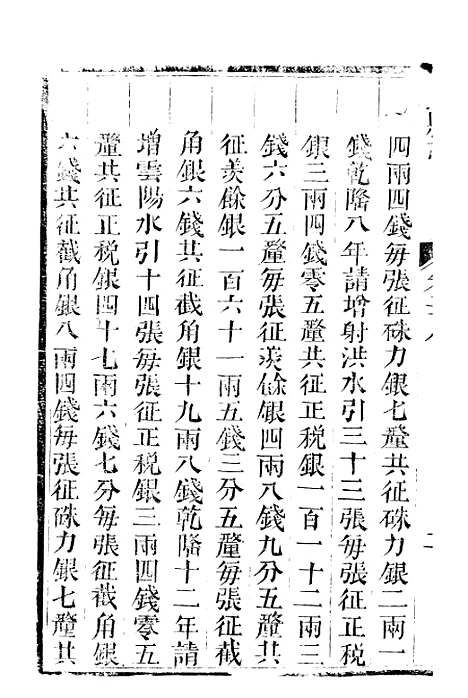 四兩四錢每張征硃力銀七釐共征硃力銀二兩一
錢乾隆八年請增射洪水引三十三張每張征正稅
銀三兩四錢零五釐共征正稅銀一百一十二兩三
錢六分五釐每張征羨餘銀四兩八錢九分五釐共
征羨餘銀一百六十一兩五錢三分五釐每張征截
角銀六錢共征截角銀十九兩八錢乾隆十二年請
增雲陽水引十四張每張征正稅銀三兩四錢零五
釐共征正稅銀四十七兩六錢七分每張征截角銀
六錢共征截角銀八兩四錢每張征硃力銀七釐共